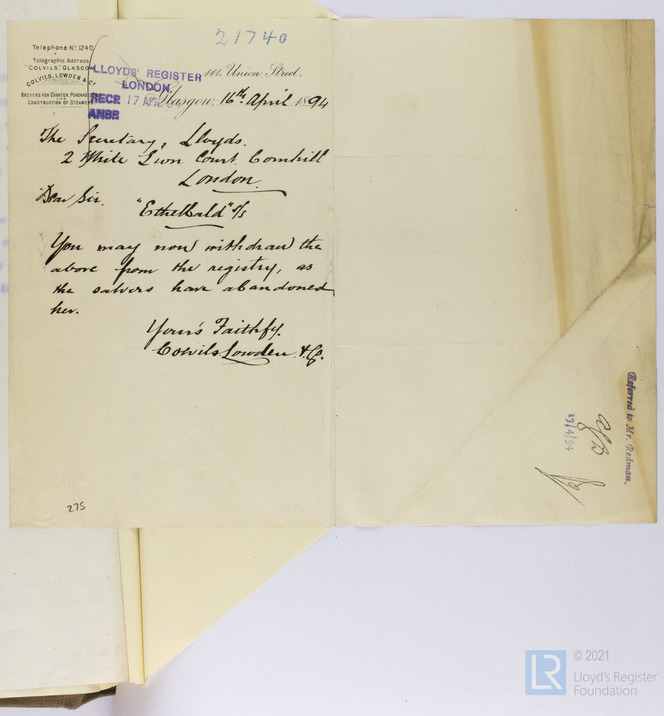 21740
Telephone No. 1240
Telegraphic Address
"COLVILS" GLASGOW
COLVILS, LOWDEN & Co
BROKERS FOR CHARTER, PURCHASE
AND
CONSTRUCTION OF STEAMERS
LLOYDS REGISTER
LONDON.
RECD 17 APR. 94
ANSD
141, Union Street.
Glasgow, 16th April 1894
The Secretary, Lloyds.
2 White Lion Court, Cornhill
London.
Dear Sir.
"Ethelbald" s/s
You may now withdraw the
above from the registry, as
the salvers have abandoned
her.
Your's Faithfy.
Colvils Lowden & Co.
275
Referred to Mr. Redman.
17/4/94
© 2021
LR
Lloyd's Register
Foundation